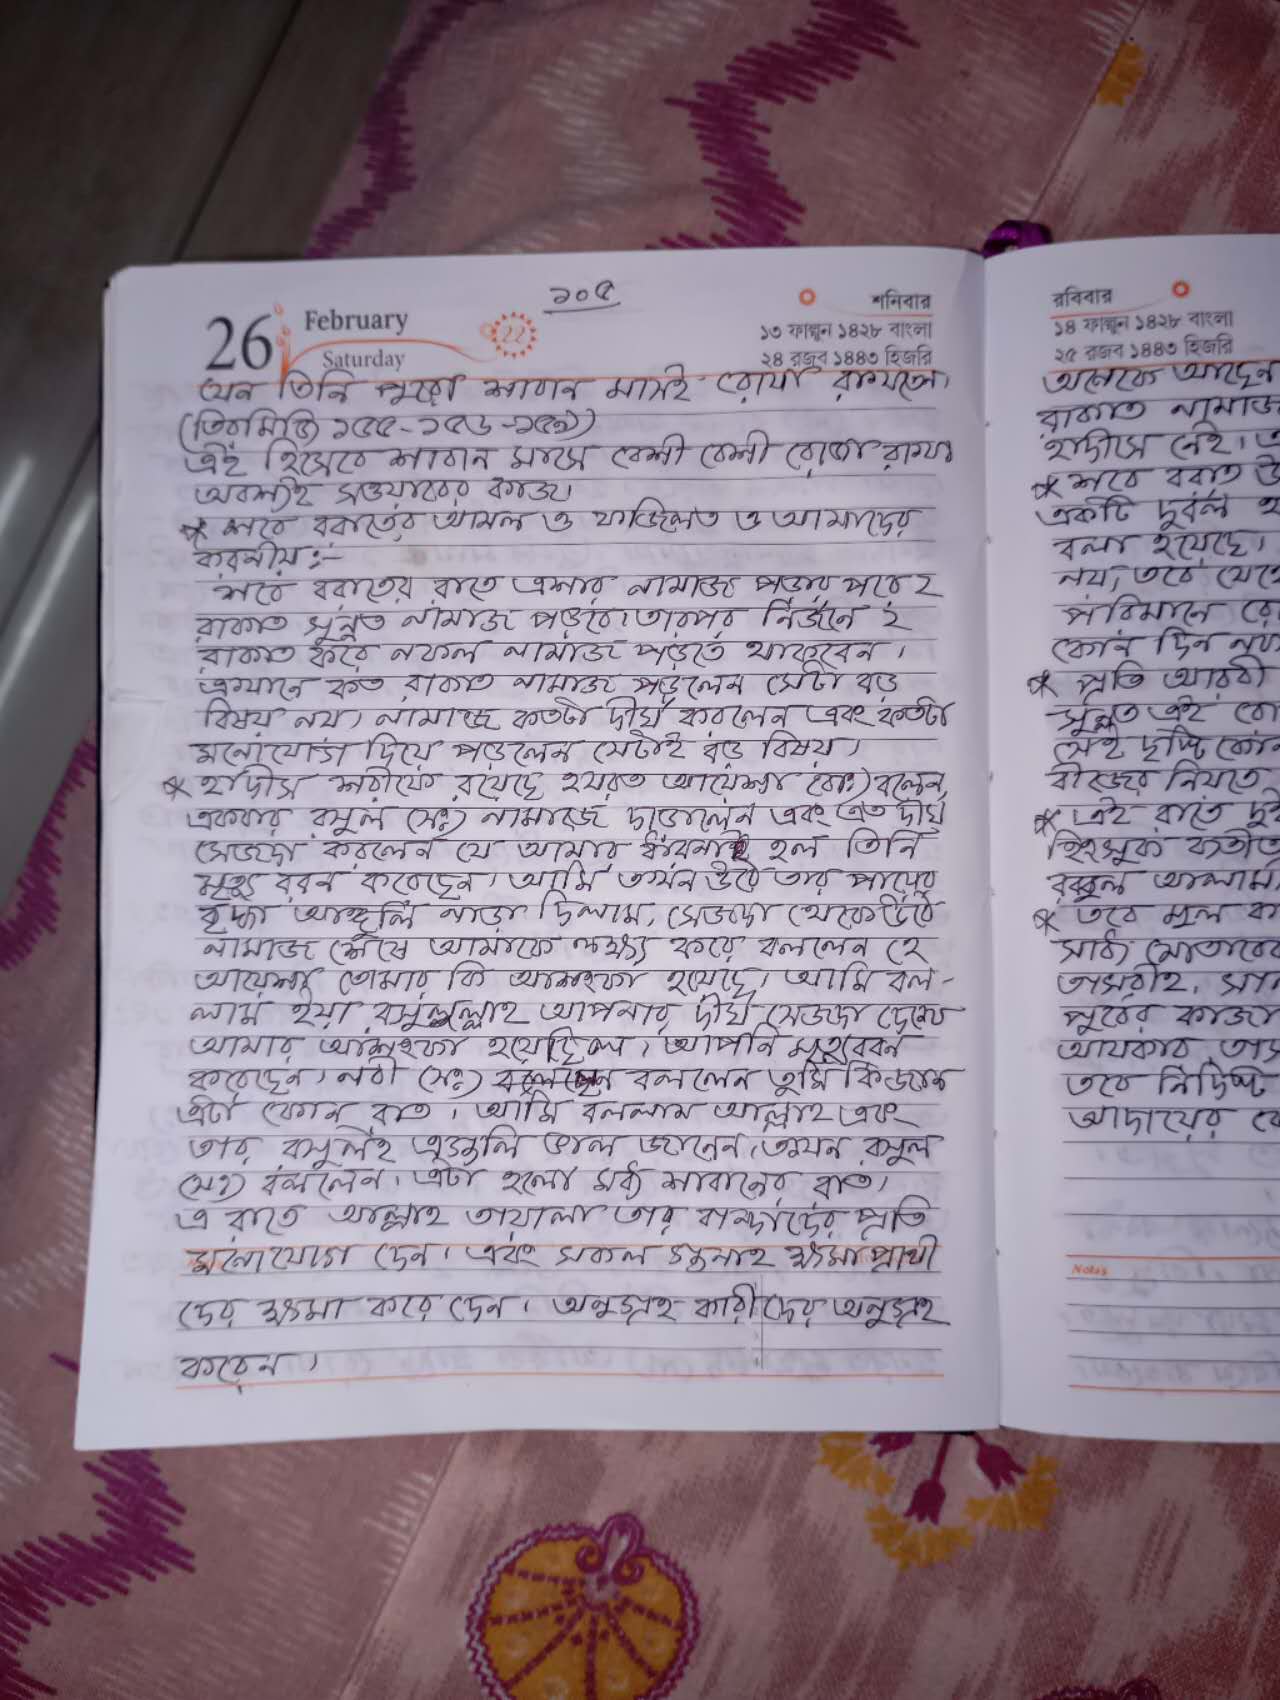 ১০৫
26 February
Saturday
22
শনিবার
১৩ ফাল্গুন ১৪২৮ বাংলা
২৪ রজব ১৪৪৩ হিজরি
যেন তিনি পুরো শাবান মাসই রোযা রাখতেন।
(তিরমিজি ১৫৫-১৫৬-১৫৯)
এই হিসেবে শাবান মাসে বেশী বেশী রোজা রাখা
অবশ্যই সওয়াবের কাজ।
* শবে বরাতের আমল ও ফজিলত ও আমাদের
করনীয়:-
শবে বরাতের রাতে এশার নামাজ পড়ার পরে ২
রাকাত সুন্নত নামাজ পড়বে। তারপর নির্জনে ২
রাকাত করে নফল নামাজ পড়তে থাকবেন।
এখানে কত রাকাত নামাজ পড়লেন সেটা বড়
বিষয় নয়, নামাজ কতটা দীর্ঘ করলেন এবং কতটা
মনোযোগ দিয়ে পড়লেন সেটাই বড় বিষয়।
* হাদীস শরীফে রয়েছে হযরত আয়েশা (রাঃ) বলেন,
একবার রসুল (সঃ) নামাজে দাড়ালেন এবং এত দীর্ঘ
সেজদা করলেন যে আমার ধারনাই হল তিনি
মৃত্যু বরন করেছেন। আমি তখন উঠে তার পায়ের
বৃদ্ধা আঙ্গুলি নাড়া দিলাম, সেজদা থেকে উঠে
নামাজ শেষে আমাকে লক্ষ্য করে বললেন হে
আয়েশা তোমার কি আশংকা হয়েছে। আমি বল-
লাম ইয়া রসুলুল্লাহ আপনার দীর্ঘ সেজদা দেখে
আমার আশংকা হয়েছিল। আপনি মৃত্যুবরন
করেছেন। নবী (সঃ) বললেন তুমি কি জান
এটা কোন রাত। আমি বললাম আল্লাহ এবং
তার রসুলই এগুলি ভাল জানেন, তখন রসুল
(সঃ) বললেন। এটা হলো মধ্য শাবানের রাত।
এ রাতে আল্লাহ তায়ালা তার বান্দাদের প্রতি
মনোযোগ দেন। এবং সকল গুনাহ ক্ষমা প্রার্থী
দের ক্ষমা করে দেন। অনুগ্রহ কারীদের অনুগ্রহ
করেন।
রবিবার
১৪ ফাল্গুন ১৪২৮ বাংলা
২৫ রজব ১৪৪৩ হিজরি
অনেকে আছেন
রাকাত নামাজ
হাদীসে নেই।
* শবে বরাত
একটি দুর্বল
বলা হয়েছে।
নয়, তবে
পরিমানে
কোন দিন
* প্রতি আরবী
সুন্নত এই
সেই দৃষ্টি
বীজের নিয়তে
* এই রাতে
হিংসুক
আলামী
* তবে মূল
তাসবীহ,
পুর্বের কাজা
তবে নির্দিষ্ট
আদায়ের
Notes